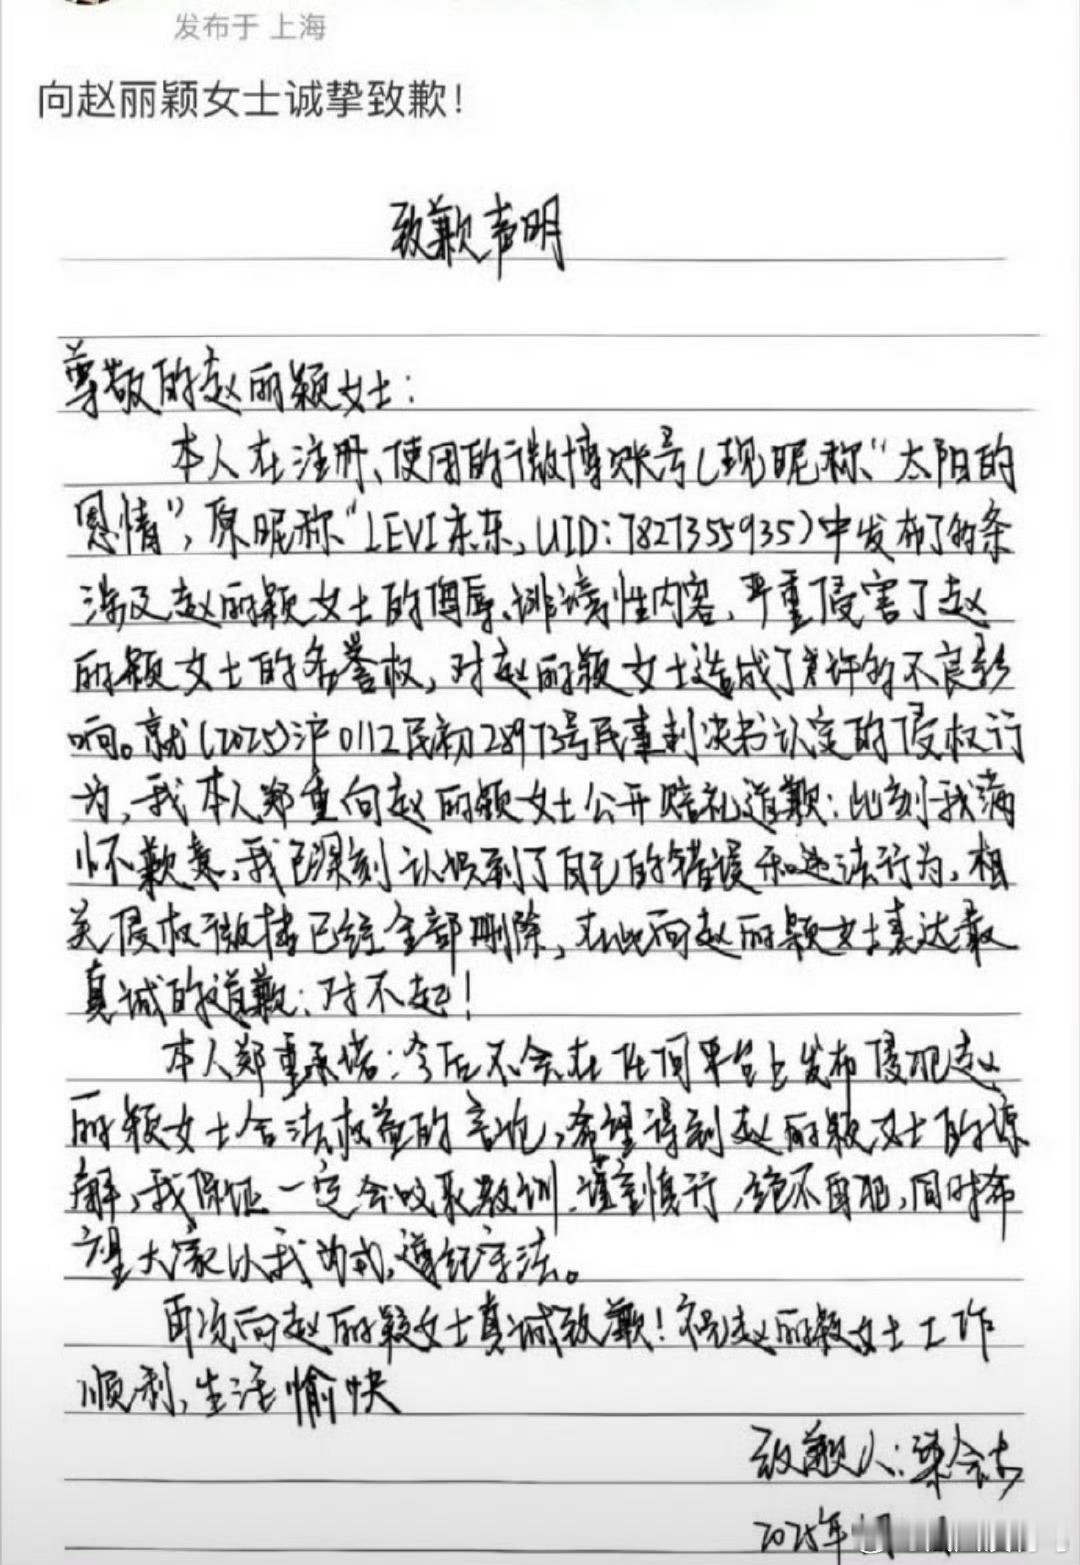 发布于 上海
向赵丽颖女士诚挚致歉！
致歉声明
尊敬的赵丽颖女士：
本人在注册、使用的微博账号（现昵称“太阳的
恩情”，原昵称“LEVI京东，UID：7827355935）中发布了的条
涉及赵丽颖女士的侮辱、诽谤性内容，严重侵害了赵
丽颖女士的名誉权，对赵丽颖女士造成了许的不良影
响。就（2025）沪0112民初28973号民事判决书认定的侵权行
为，我本人郑重向赵丽颖女士公开赔礼道歉：此刻我满
怀歉意，我已深刻认识到了自己的错误和违法行为，相
关侵权微博已经全部删除，在此向赵丽颖女士表达最
真诚的道歉：对不起！
本人郑重承诺：今后不会在任何平台上发布侵犯赵
丽颖女士合法权益的言论，希望得到赵丽颖女士的谅
解，我保证一定会吸取教训、谨言慎行，绝不再犯，同时希
望大家以我为戒，遵纪守法。
再次向赵丽颖女士真诚致歉！祝赵丽颖女士工作
顺利，生活愉快
致歉人：梁会
2025年 月